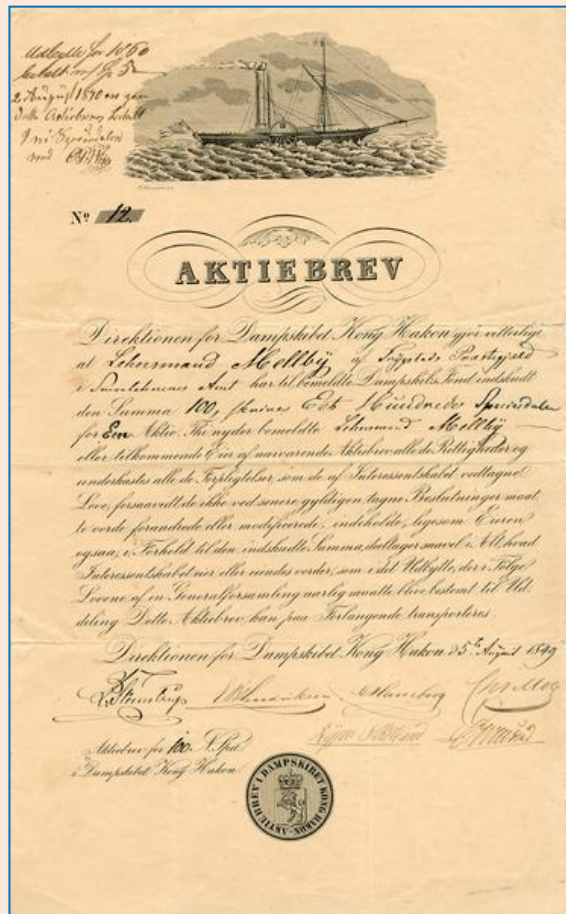 Udbytte for 1860
2 August 1870
Nº 12.
AKTIEBREV
Direktionen for Dampskibet Kong Hakon gjør vitterligt
at Lehnsmand Mellbÿ af Præstegjeld
i Smaalehnenes Amt har til bemeldte Dampskibs Fond indskudt
den Summa 100, skriver Eet Hundrede Speciesdaler
for Een Aktie. Thi nyder bemeldte Lehnsmand Mellbÿ
eller tilkommende Eier af nærværende Aktiebrev alle de Rettigheder og
underkastes alle de Forpligtelser, som de af Interessentskabet vedtagne
Love, forsaavidt de ikke ved senere gyldigen tagne Beslutninger maat
te vorde forandrede eller modificerede, indeholde, ligesom Eieren
ogsaa, i Forhold til den indskudte Summa, deeltager saavel i Alt, hvad
Interessentskabet eier eller eiendes vorder, som i det Udbytte, der i Følge
Lovene af en Generalforsamling aarlig maatte blive bestemt til Ud-
deling. Dette Aktiebrev kan paa Forlangende transporteres.
Direktionen for Dampskibet Kong Hakon d 5te August 1849
Aktiebrev for 100 Spd
i Dampskibet Kong Hakon.
AKTIEBREV I DAMPSKIBET KONG HAKON